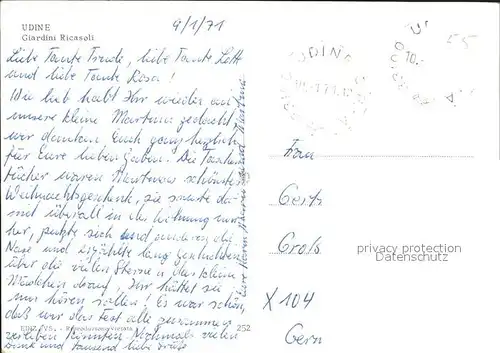 UDINE
Giardini Ricasoli
9/1/71
Liebe Tante Trude, liebe Tante Lott
und liebe Tante Rosa!
Wie lieb habt Ihr wieder an
unsere kleine Martina gedacht,
wir danken Euch ganz herzlich
für Eure lieben Gaben. Die Taschen
tücher waren Martinas schönstes
Weihnachtsgeschenk, sie sauste da-
mit überall in der Wohnung um-
her, putzte sich und anderen die
Nase und erzählte lang Geschichten
über die vielen Sterne u. das kleine
Mädchen darauf, Ihr hättet sie
nur hören sollen! Es war schön,
daß wir das Fest alle zusammen
verleben konnten. Nochmals vielen
Dank und tausend liebe Grüße
Eure Henni und Martina
EDIZ. VS. - Riproduzione vietata
252
UDINE
55
Frau
Gerti
Groß
X 104
Gera
privacy protection
DatenSchutz